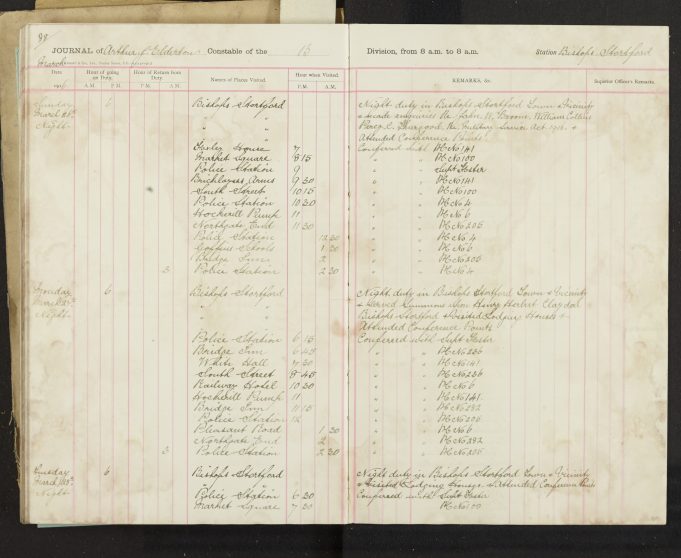 99
JOURNAL of Arthur C. Elderton Constable of the 16 Division, from 8 a.m. to 8 a.m. Station Bishops Stortford
March
Date Hour of going on Duty. Hour of Return from Duty. Names of Places Visited. Hour when Visited. REMARKS, &c. Superior Officer's Remarks.
191 A.M. P.M. A.M. P.M. P.M. A.M.
Sunday 6 Bishops Stortford Night duty in Bishops Stortford Town & Vicinity
March 26th " " & made enquiries Re John W. William Collins
Night " " Percy C. Thurgood, Re, Military Service Act 1916. &
" " Attended Conference Points
House 7 Conferred with PC No 141
Market Square 8 15 " " PC No 100
Police Station 9 " " Supt Foster
Bricklayers Arms 9 30 " " PC No 141
South Street 10 15 " " PC No 100
Police Station 10 30 " " PC No 4
Hockerill Pump 11 " " PC No 6
Northgate End 11 30 " " PC No 206
Police Station 12 30 " " PC No 4
Schools 1 30 " " PC No 6
Bridge Inn 2 " " PC No 206
3 Police Station 2 30 " " PC No 4
Monday 6 Bishops Stortford Night duty in Bishops Stortford Town & Vicinity
March 27th " " & Served Summons upon Henry Herbert
Night " " Bishops Stortford & Visited Lodging Houses &
" " Attended Conference Points
Police Station 6 15 Conferred with Supt Foster
Bridge Inn 6 45 " " PC No 236
White Hall 7 30 " " PC No 141
South Street 8 45 " " PC No 236
Railway Hotel 10 30 " " PC No 6
Hockerill Pump 11 " " PC No 141
Bridge Inn 11 15 " " PC No 292
Police Station 12 " " PC No 206
Road 1 30 " " PC No 6
Northgate End 2 " " PC No 292
3 Police Station 2 30 " " PC No 206
Tuesday 6 Bishops Stortford Night duty in Bishops Stortford Town & Vicinity
March 28th " " & Visited Lodging Houses & Attended Conference Points
Night Police Station 6 30 Conferred with Supt Foster
Market Square 7 30 " " PC No 100